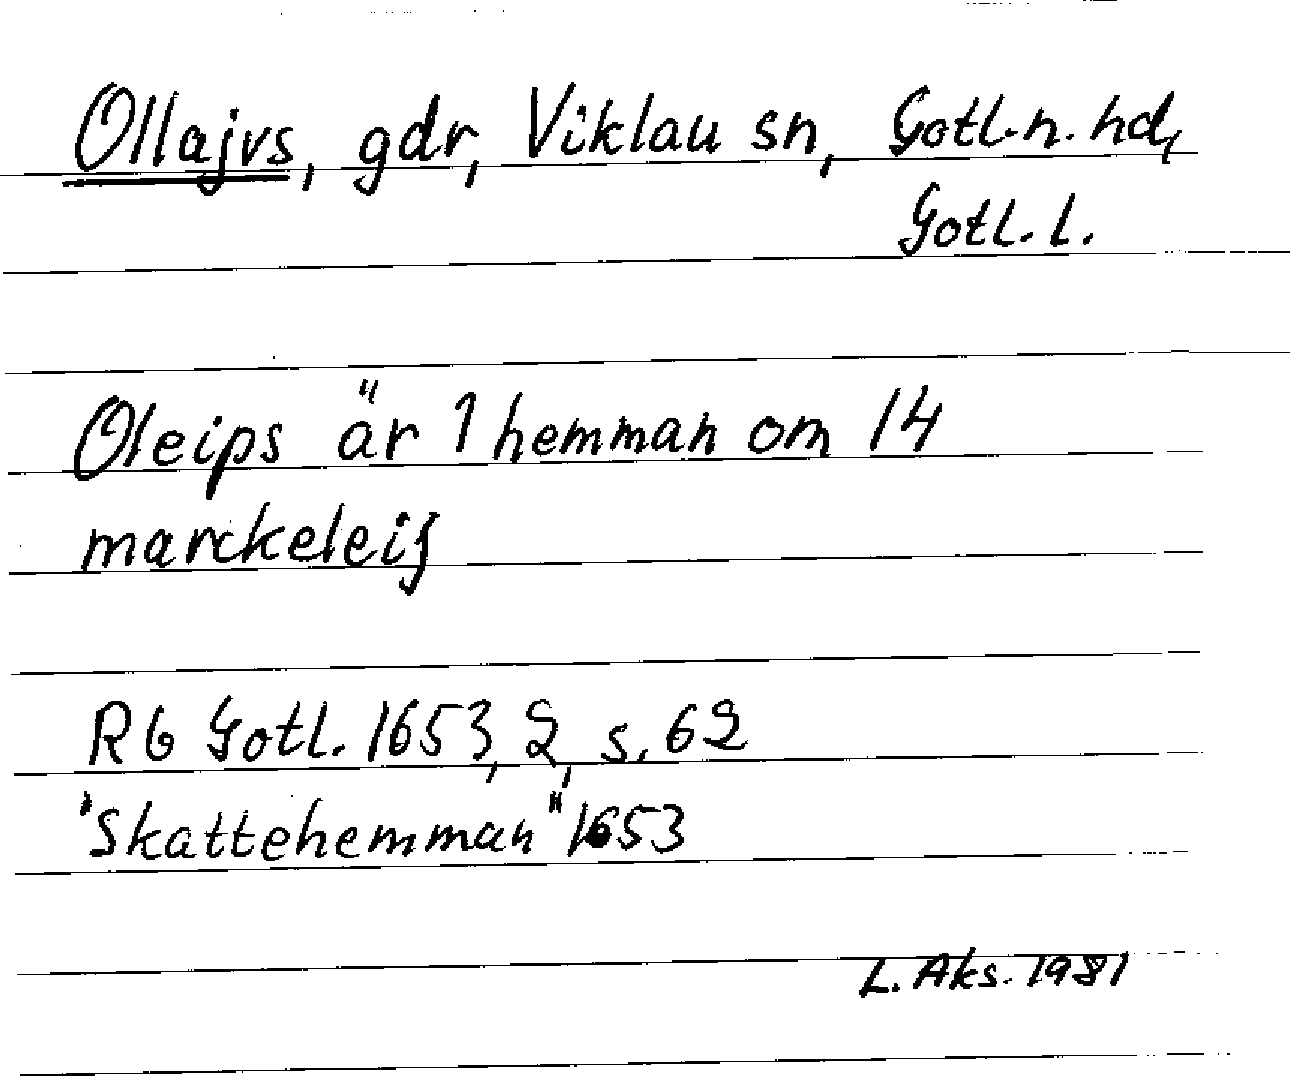 Ollajvs, gdr, Viklau sn, Gotl. n. hd,
Gotl. l.
Oleips är 1 hemman om 14
marckeleij
Rb Gotl. 1653, 2, s. 62
"Skattehemman" 1653
L. Aks. 1981